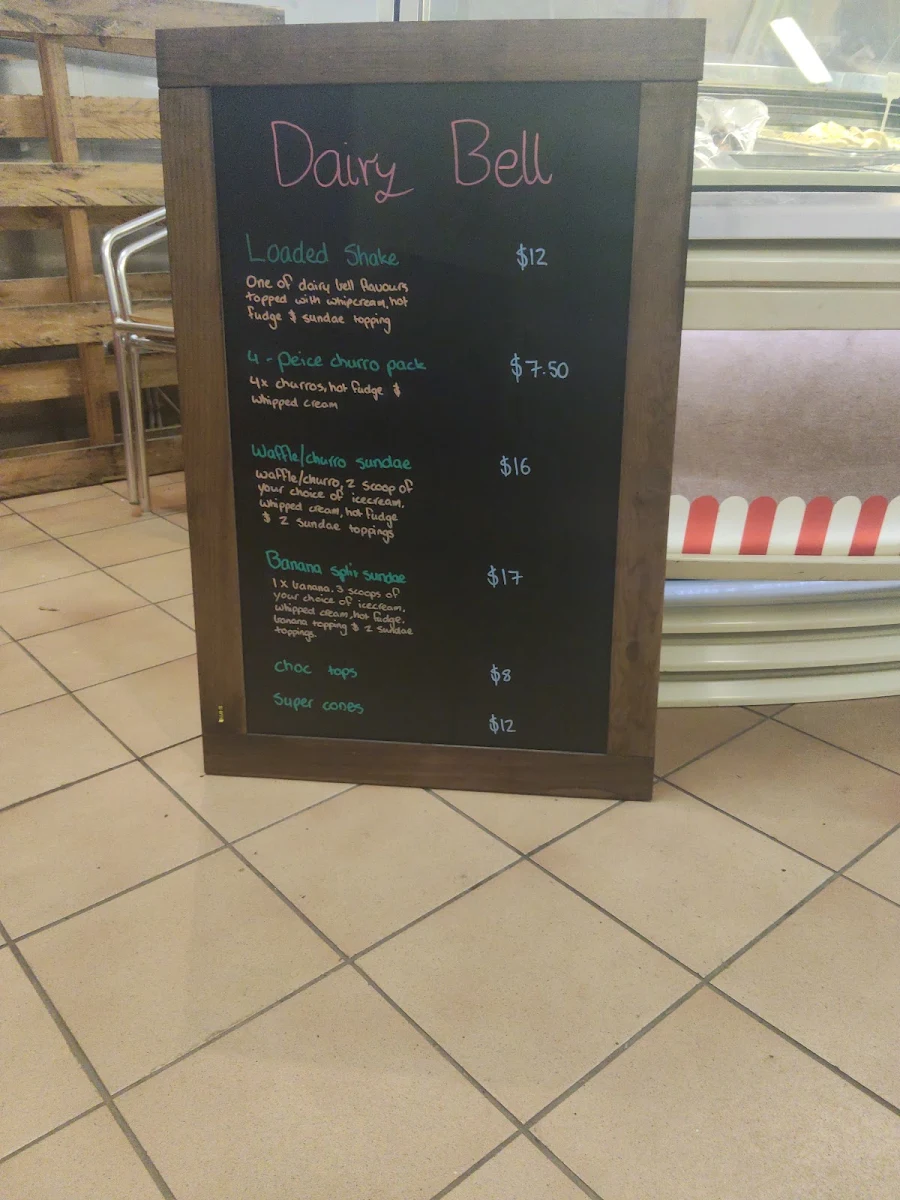 Dairy Bell
Loaded Shake $12
One of dairy bell flavours
topped with whipcream, hot
fudge & sundae topping
4 - Peice churro pack $7.50
4x churros, hot fudge &
whipped cream
Waffle/churro sundae $16
waffle/churro, 2 scoop of
your choice of icecream,
whipped cream, hot fudge
& 2 sundae toppings
Banana split sundae $17
1 x banana, 3 scoops of
your choice of icecream,
whipped cream, hot fudge,
banana topping & 2 sundae
toppings.
choc tops $8
Super cones $12